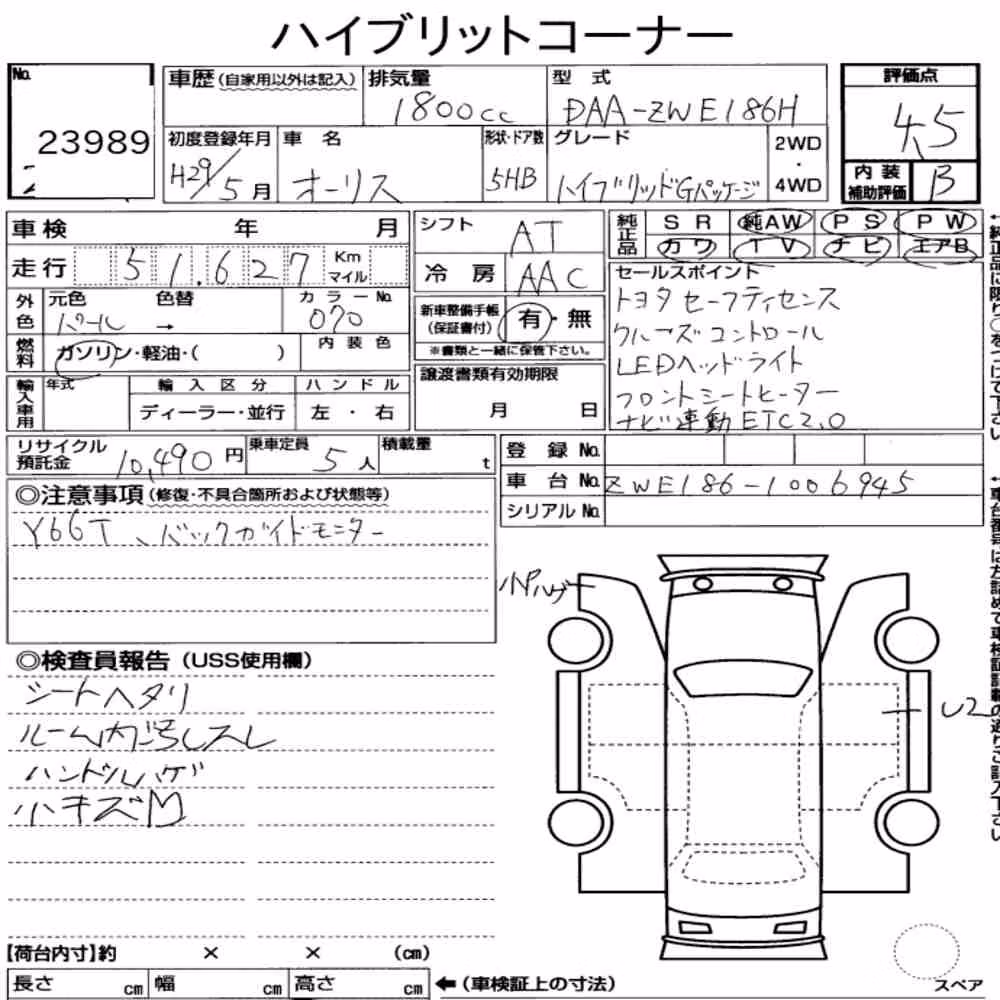 ハイブリットコーナー
No. 23989
車歴 (自家用以外は記入)
排気量 1800cc
型式 DAA-ZWE186H
評価点 4.5
初度登録年月 H29/5月
車名 オーリス
形状・ドア数 5HB
グレード ハイブリッドGパッケージ
2WD・4WD
内装補助評価 B
車検 年 月
走行 51,627 Km マイル
外色 元色 パール 色替 → カラーNo. 070
燃料 ガソリン・軽油・( ) 内装色
輸入車用 年式 輸入区分 ハンドル
ディーラー・並行 左・右
シフト AT
冷房 AAC
新車整備手帳(保証書付) 有・無
※書類と一緒に保管下さい。
譲渡書類有効期限
月 日
純正品 SR 純AW PS PW
カワ TV ナビ エアB
セールスポイント
トヨタセーフティセンス
クルーズコントロール
LEDヘッドライト
フロントシートヒーター
ナビ連動ETC2.0
リサイクル預託金 10,490円
乗車定員 5人
積載量 t
登録No.
車台No. ZWE186-1006945
シリアルNo.
◎注意事項 (修復・不具合箇所および状態等)
Y66T、バックガイドモニター
◎検査員報告 (USS使用欄)
シートヘタリ
ルーム内汚しスレ
ハンドルハゲ
小キズM
U2
【荷台内寸】約 × × (cm)
長さ cm 幅 cm 高さ cm
←(車検証上の寸法)
スペア
←純正品に限り○をつけて下さい
←車台番号は左詰めで車検証記載の通りご記入下さい